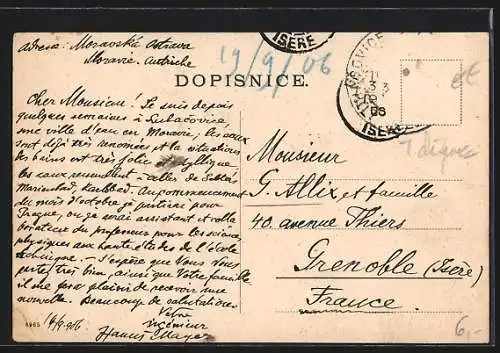 adresa: Moravská Ostrava
Moravie. Autriche
19/9/06
ISÈRE
DOPISNICE.
Cher Monsieur! Je suis depuis
quelques semaines à Luhačovice,
une ville d'eau en Moravie, les eaux
sont déjà très renommées et la situation
des bains est très jolie idyllique
les eaux ressemblent à celles de
Marienbad, Karlsbad. Au commencement
du mois d'octobre je partirai pour
Prague, où je serai assistant et colla-
borateur du professeur pour les sciences
physiques aux hautes études de l'école
technique. - J'espère que Vous Vous
portez très bien, ainsi que Votre famille
il me fera plaisir de recevoir une
nouvelle. Beaucoup de salutations
Votre
ingénieur
Hanuš Mayer
6965
14/9 906
Monsieur
G. Allix et famille
40. avenue Thiers
Grenoble (Isère)
France.
6,-